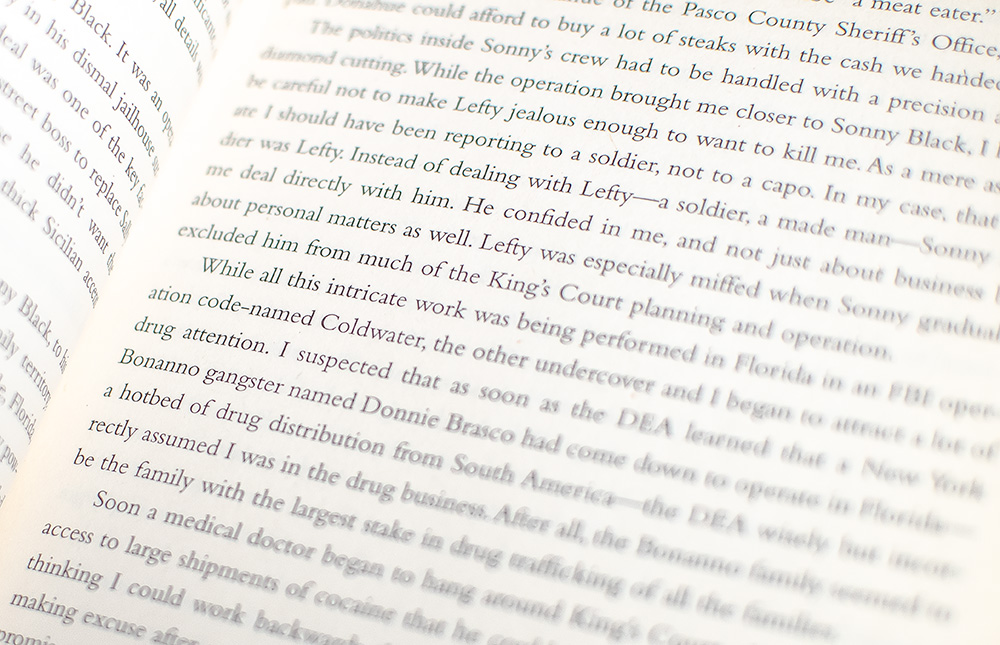 Black. It was an open
in his dismal jailhouse
was one of the key
street boss to replace
he didn't want
thick Sicilian accent
Black, to
territory
Florida
pow
all details
"a meat eater."
of the Pasco County Sheriff's Office,
Donahue could afford to buy a lot of steaks with the cash we handed
The politics inside Sonny's crew had to be handled with a precision
diamond cutting. While the operation brought me closer to Sonny Black, I
be careful not to make Lefty jealous enough to want to kill me. As a mere as
ate I should have been reporting to a soldier, not to a capo. In my case, that
dier was Lefty. Instead of dealing with Lefty—a soldier, a made man—Sonny
me deal directly with him. He confided in me, and not just about business
about personal matters as well. Lefty was especially miffed when Sonny gradual
excluded him from much of the King's Court planning and operation.
While all this intricate work was being performed in Florida in an FBI oper-
ation code-named Coldwater, the other undercover and I began to attract a lot of
drug attention. I suspected that as soon as the DEA learned that a New York
Bonanno gangster named Donnie Brasco had come down to operate in Florida—
a hotbed of drug distribution from South America—the DEA wisely but incor-
rectly assumed I was in the drug business. After all, the Bonanno family seemed to
be the family with the largest stake in drug trafficking of all the families.
Soon a medical doctor began to hang around King's
access to large shipments of cocaine that he
thinking I could work backward
making excuse after